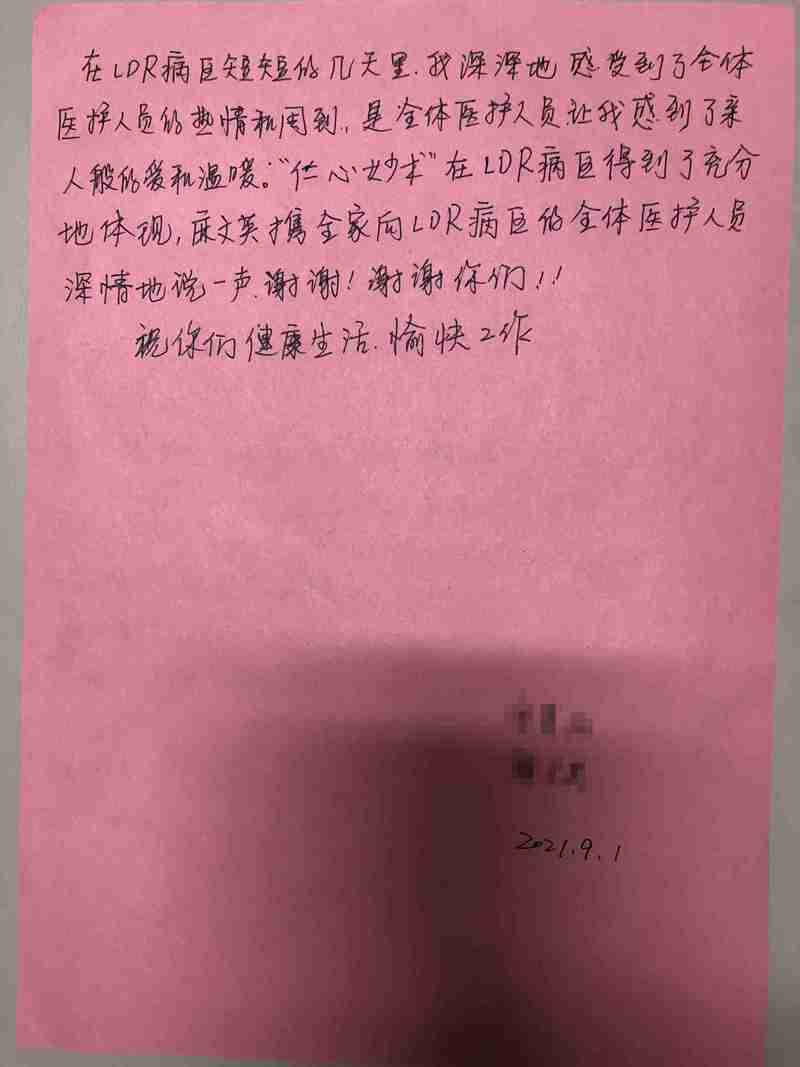 在LDR病区短短的几天里.我深深地感受到了全体
医护人员的热情和周到，是全体医护人员让我感到了亲
人般的爱和温暖。“仁心妙术”在LDR病区得到了充分
地体现，麻文英携全家向LDR病区的全体医护人员
深情地说一声.谢谢！谢谢你们！！
祝你们健康生活.愉快工作
2021.9.1